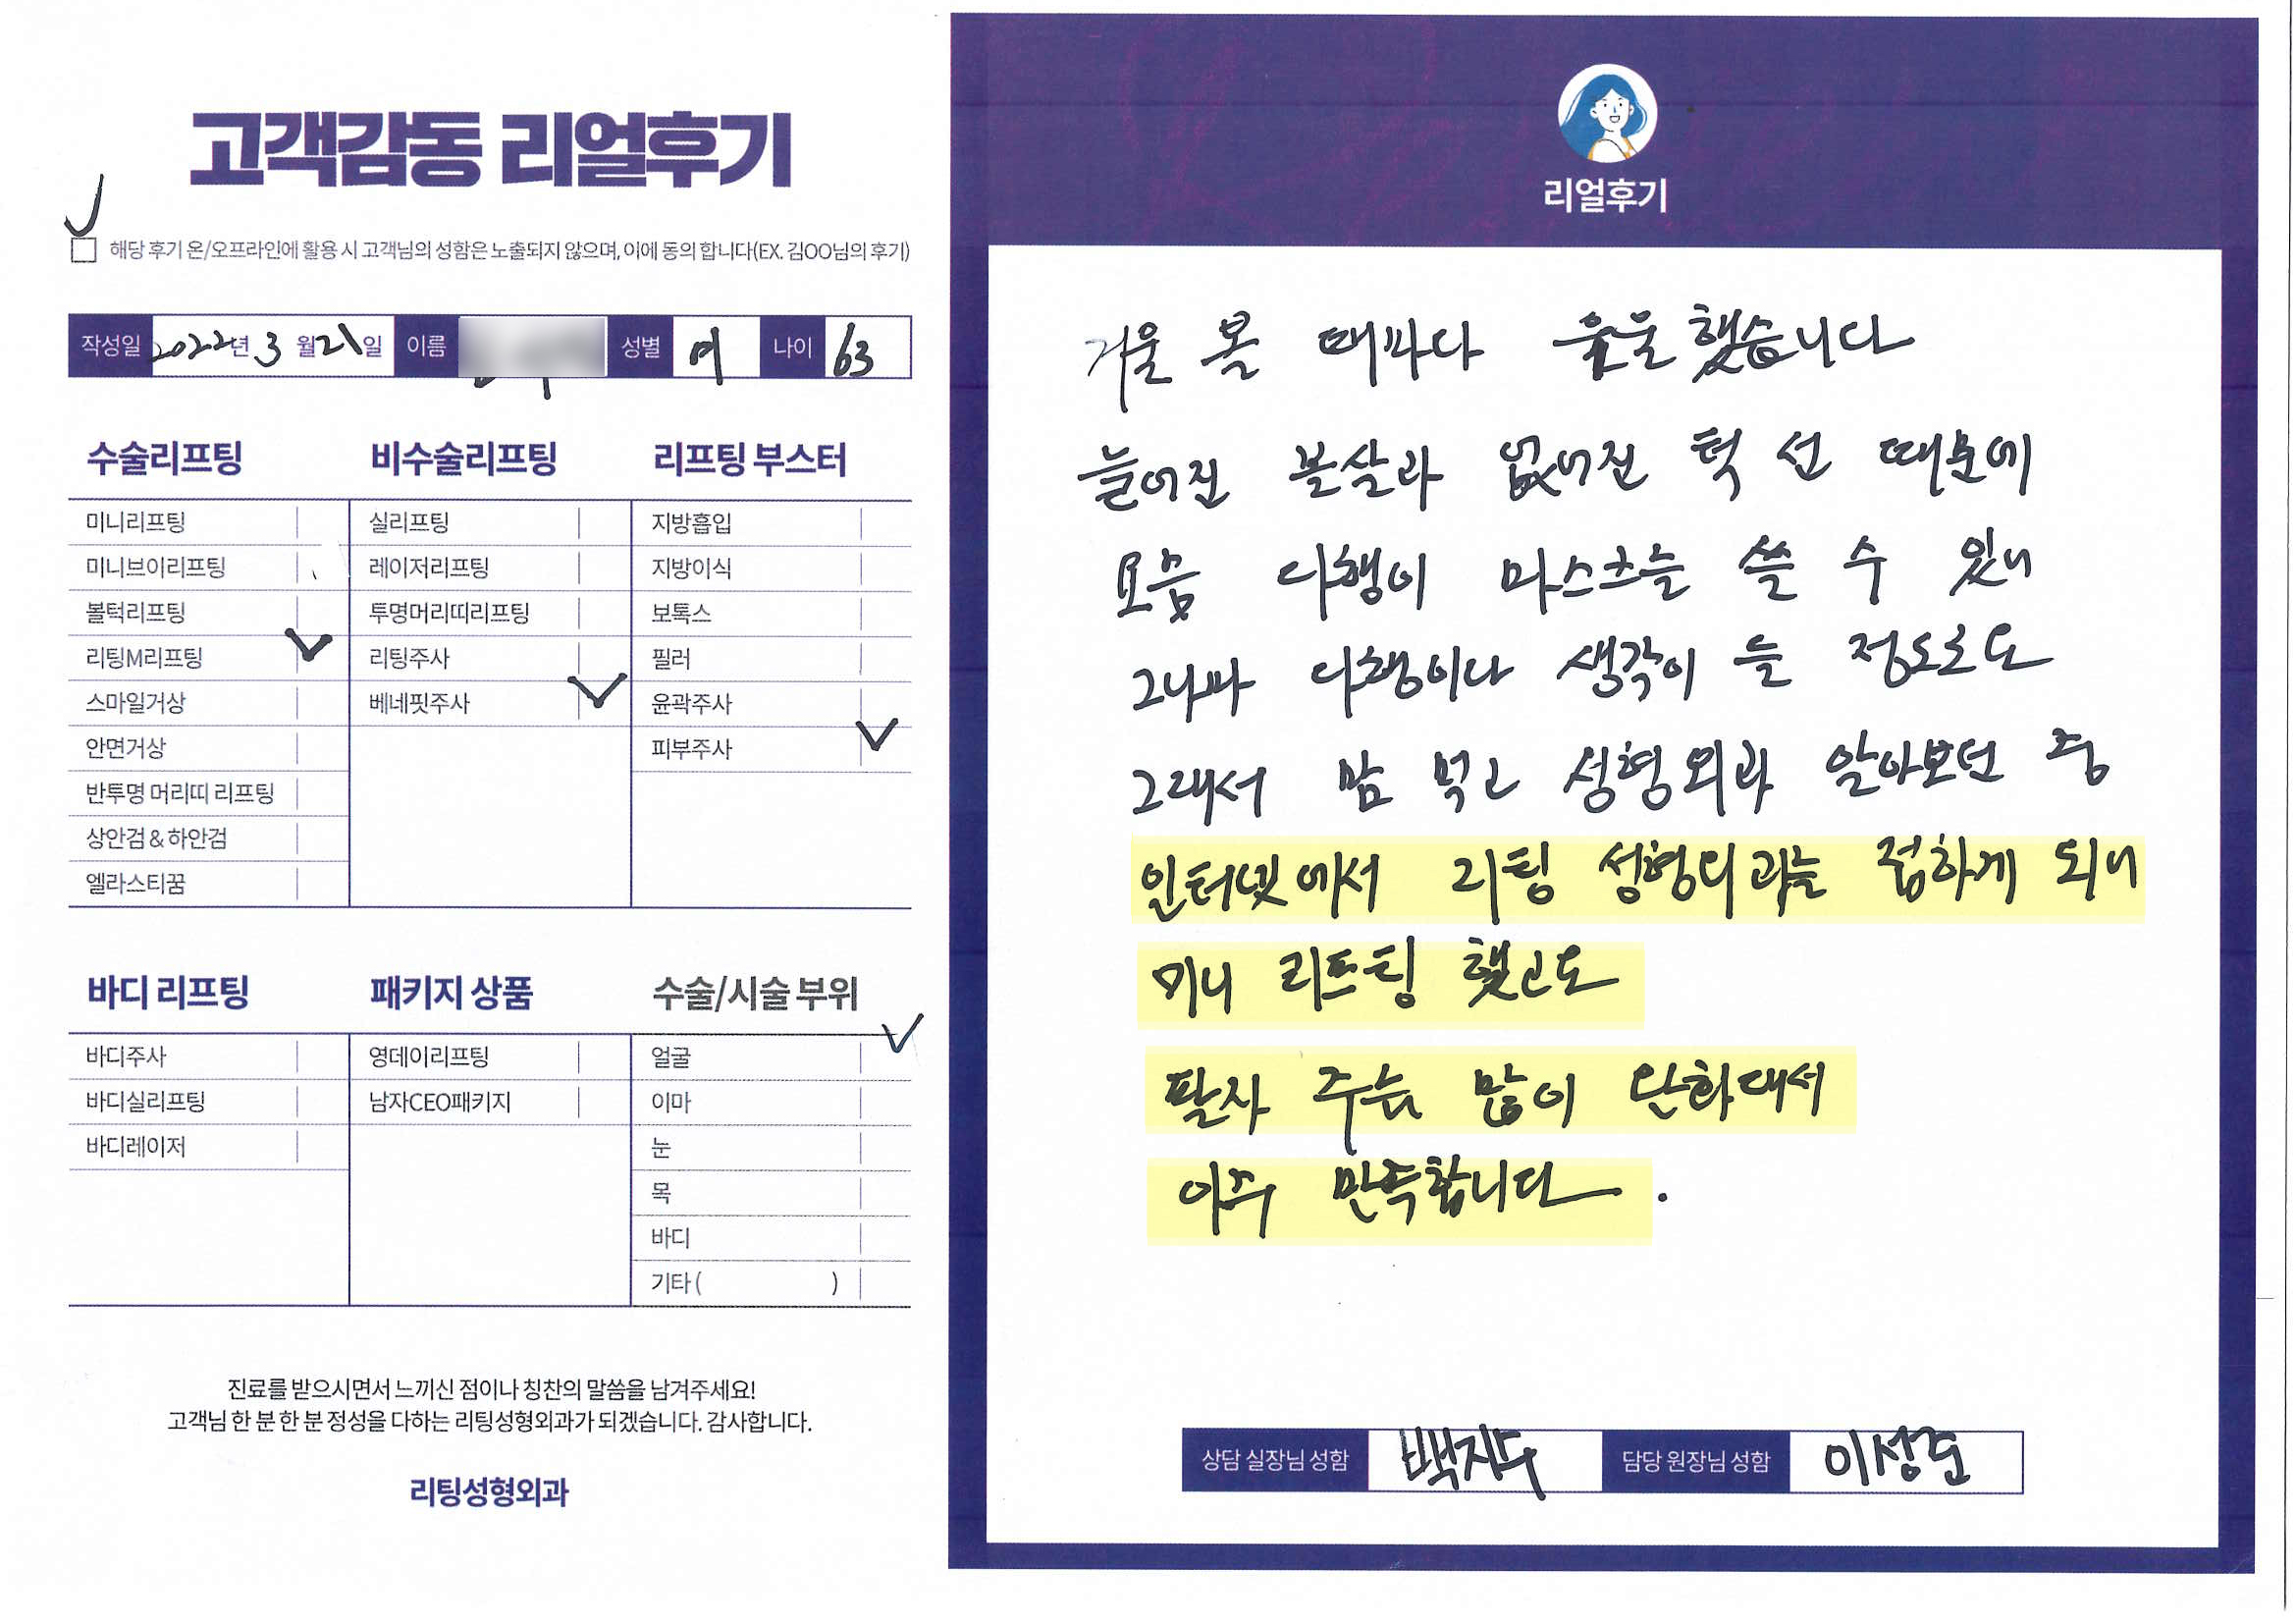 고객감동 리얼후기
해당 후기 온/오프라인에 활용 시 고객님의 성함은 노출되지 않으며, 이에 동의 합니다(EX. 김OO님의 후기)
작성일 2022년 3월 21일 이름 성별 여 나이 63
수술리프팅
미니리프팅
미니브이리프팅
볼턱리프팅
리팅M리프팅
스마일거상
안면거상
반투명 머리띠 리프팅
상안검 & 하안검
엘라스티꿈
비수술리프팅
실리프팅
레이저리프팅
투명머리띠리프팅
리팅주사
베네핏주사
리프팅 부스터
지방흡입
지방이식
보톡스
필러
윤곽주사
피부주사
바디 리프팅
바디주사
바디실리프팅
바디레이저
패키지 상품
영데이리프팅
남자CEO패키지
수술/시술 부위
얼굴
이마
눈
목
바디
기타 ( )
진료를 받으시면서 느끼신 점이나 칭찬의 말씀을 남겨주세요!
고객님 한 분 한 분 정성을 다하는 리팅성형외과가 되겠습니다. 감사합니다.
리팅성형외과
리얼후기
거울 볼 때마다 우울했습니다
늘어진 볼살과 없어진 턱 선 때문에
요즘 다행이 마스크를 쓸 수 있어
그나마 다행이다 생각이 들 정도로요
그래서 맘 먹고 성형외과 알아보던 중
인터넷에서 리팅 성형외과를 접하게 되어
미니 리프팅 했고요
팔자 주름 많이 완화돼서
아주 만족합니다.
상담 실장님 성함 백지수 담당 원장님 성함 이성준